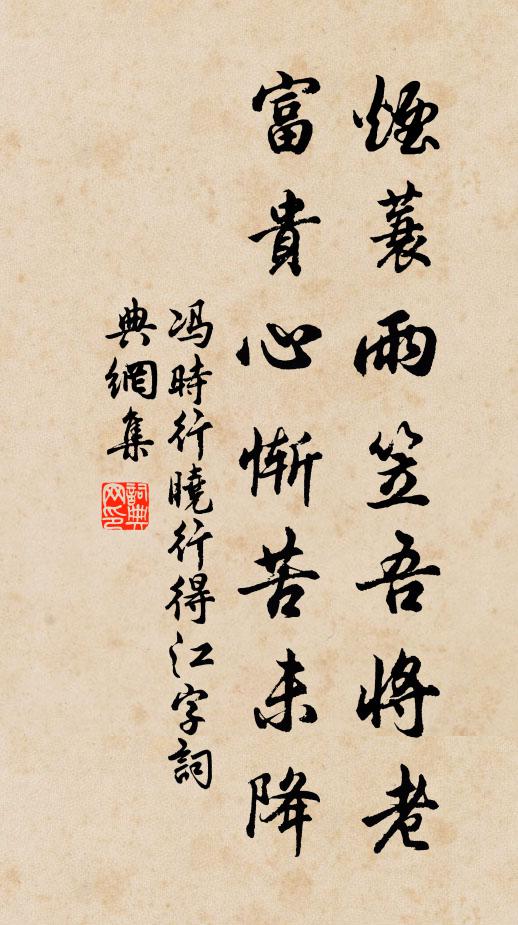 煙蓑雨笠吾將老
富貴心慚苦未降
冯時行曉行得江字詞
典網集
詞典
网印